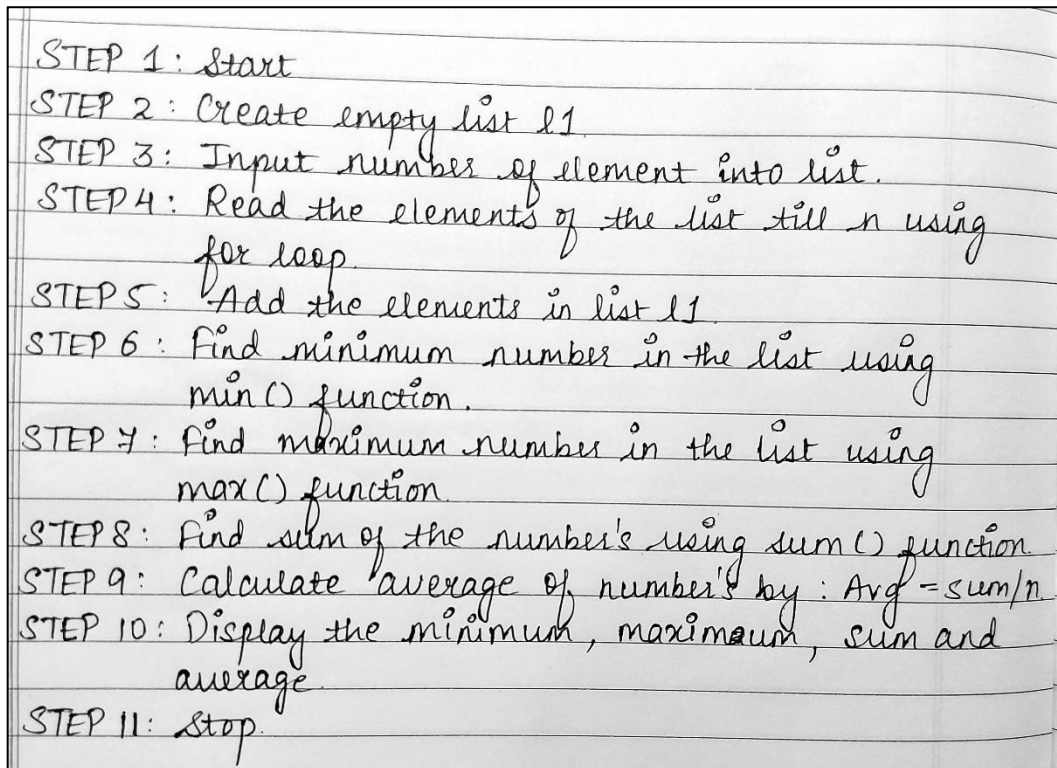 STEP 1: Start
STEP 2: Create empty list l1
STEP 3: Input number of element into list.
STEP 4: Read the elements of the list till n using
for loop.
STEP 5: Add the elements in list l1
STEP 6: Find minimum number in the list using
min() function.
STEP 7: Find maximum number in the list using
max() function.
STEP 8: Find sum of the number's using sum() function.
STEP 9: Calculate average of number's by: Avg = sum/n
STEP 10: Display the minimum, maximaum, sum and
average.
STEP 11: Stop.